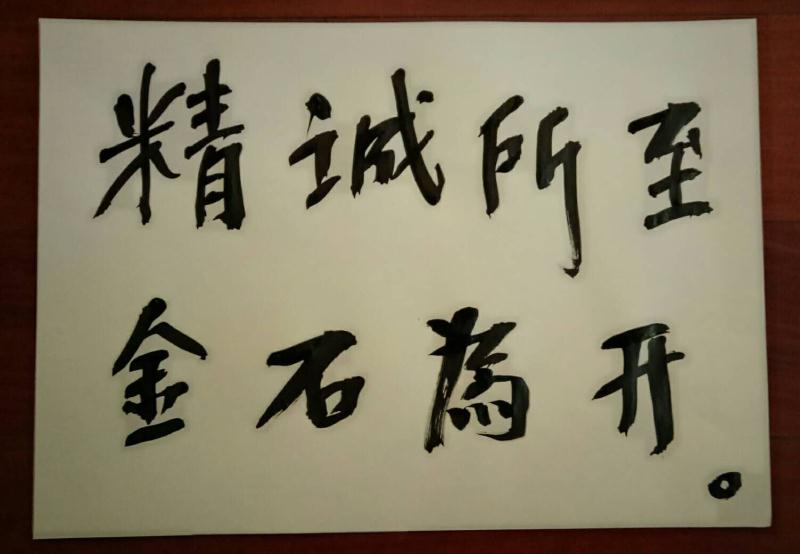 精诚所至
金石為开。